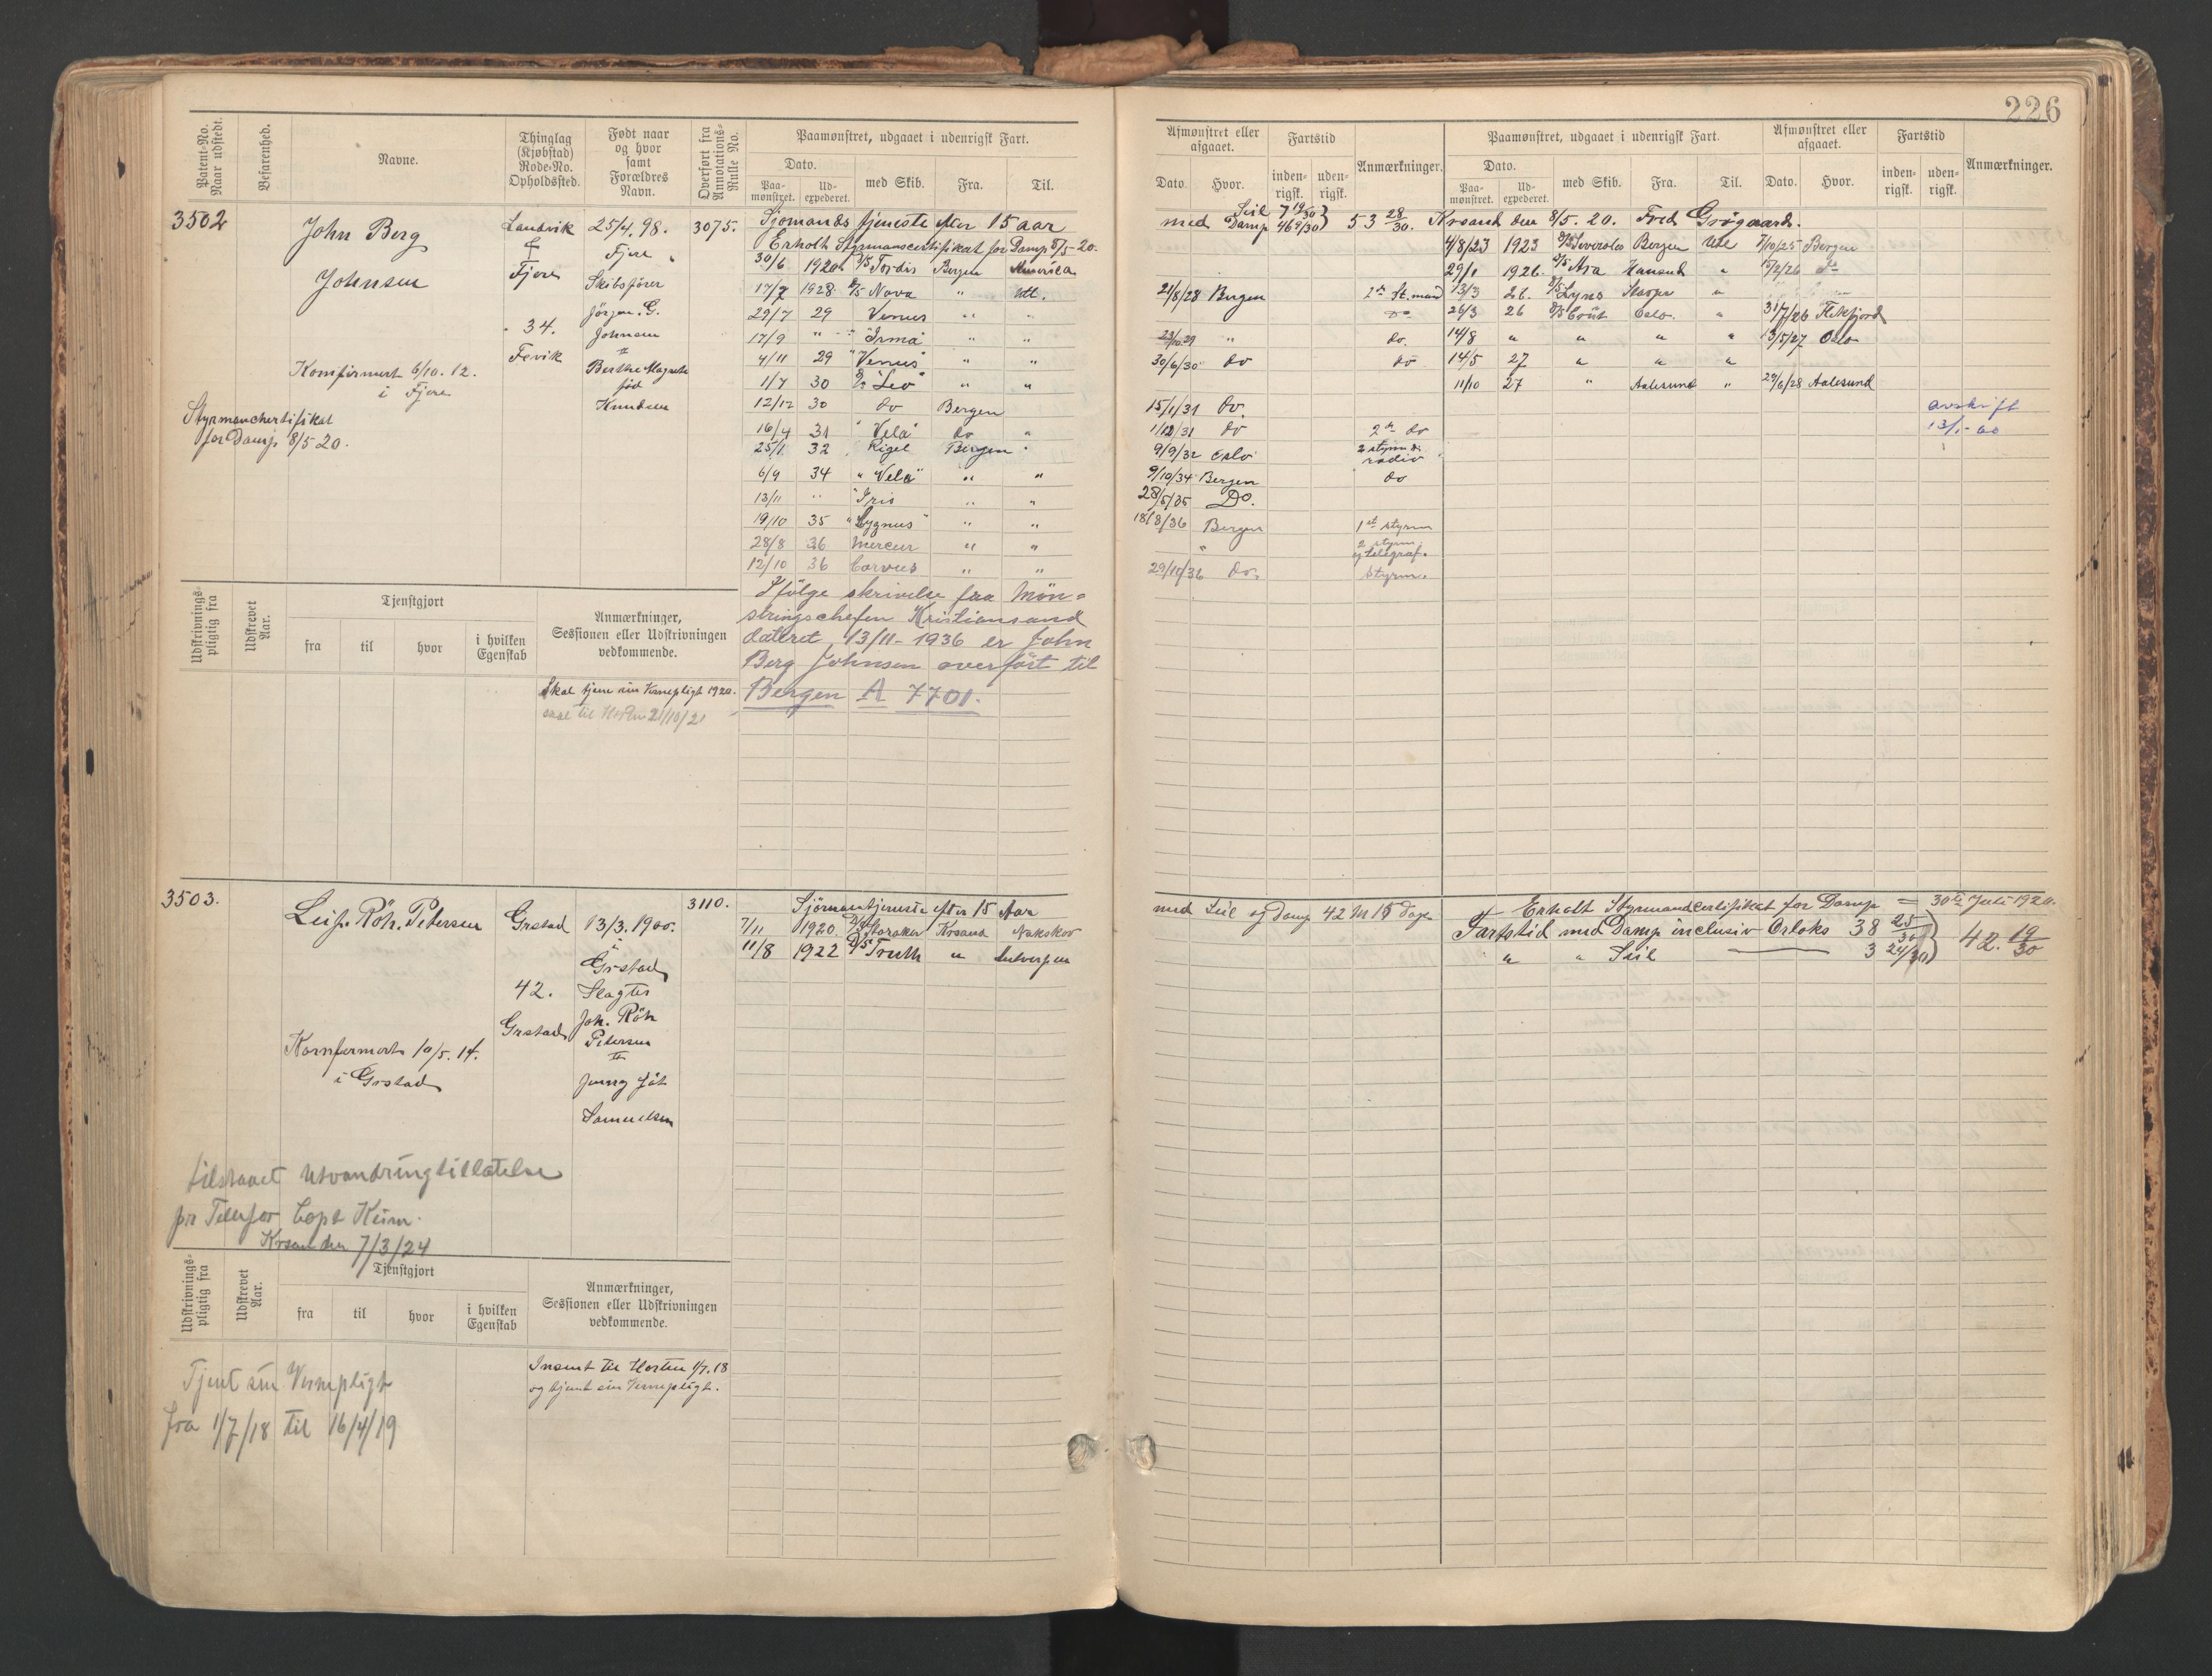 226
Patent-No. Naar udstedt.
Befarenhed.
Navne.
Thinglag (Kjøbstad) Rode-No. Opholdssted.
Født naar og hvor samt Forældres Navn.
Overført fra Annotations-Rulle No.
Paamønstret, udgaaet i udenrigsk Fart.
Dato.
Paa-mønstret.
Ud-expederet.
med Skib.
Fra.
Til.
3502
John Berg
Johnsen
Konfirmert 6/10. 12.
i Fjere
Styrmanchertifikat
for Damp 8/5 20.
Landvik
Fjere
34.
Fevik
25/4. 98.
Fjere
Skibsfører
Jørgen. G.
Johnsen
Berthe Magnete
fød
Knudsen
3075.
Sjømands tjeneste efter 15 aar
Erholt Styrmanscertifikat for Damp 8/5-20.
30/6 1920 D/S Tordis Bergen Amerika
17/7 1928 D/S Nova " Utl.
29/7 29 Venus " "
17/9 " " "Irma" " "
4/11 29 "Venus" " "
1/7 30 D/S "Leo" " "
12/12 30 do Bergen
16/4 31 "Vela" do "
25/1 32 Rigel Bergen "
6/9 34 "Vela" " "
13/11 " "Iris " "
19/10 35 "Cygnus" " "
28/8 36 Mercur " "
12/10 36 Corvus " "
Ifølge skrivelse fra Møn-
stringschefen Kristiansand
datert 13/11-1936 er John
Berg Johnsen overført til
Bergen A 7701.
Udskrivnings-pligtig fra
Udskrevet Aar.
Tjenstgjort
fra
til
hvor
i hvilken Egenskab
Anmærkninger, Sessionen eller Udskrivningen vedkommende.
Skal tjene sin Vernepligt 1920.
til Horten 21/10/21
Afmønstret eller afgaaet.
Dato.
Hvor.
Fartstid
inden-rigsk.
uden-rigsk.
Anmærkninger.
Paamønstret, udgaaet i udenrigsk Fart.
Dato.
Paa-mønstret.
Ud-expederet.
med Skib.
Fra.
Til.
Afmønstret eller afgaaet.
Dato.
Hvor.
Fartstid
inden-rigsk.
uden-rigsk.
Anmærkninger.
med Seil 7 19/30
Damp 46 9/30 } 53 28/30. Krsand den 8/5. 20. Fred Grøgaard.
4/8/23 1923 D/S Bergen Utl 7/10/25 Bergen
29/1 1926 D/S Ara Hausund " 15/2/26 do
21/8/28 Bergen 2den St.mand
13/3 26. D/S Lyns "
do
26/3 26 D/S Oslo. " 31/7/26 Flekkefjord
23/10 29 " do.
14/8 " " " " 13/5/27 Oslo
30/6/30 do do
14/5 27 " " "
11/10 27 " Aalesund " 29/6/28 Aalesund
15/1/31 do.
avskrift
1/12/31 do 2den do
13/1-60
9/9/32 Oslo 2 styrm &
radio
9/10/34 Bergen do
28/5/35 Do.
18/8/36 Bergen 1st styrm
" 2 styrm.
og telegraf.
29/10/36 do. styrm.
3503.
Leif. Röh. Petersen
Konfermert 10/5. 14.
i Grstad
Grstad
42.
Grstad
13/3. 1900.
i
Grstad
Slagter
Joh. Röh
Petersen
Jenny föt
Samuelsen
3110.
Sjømanstjeneste efter 15 Aar
7/11 1920 D/S Storaker Krsand Nakskov
11/8 1922 D/S Truth " Antverpen
med Seil og Damp 42 M 15 dage
Erholt Styrmandcertifikat for Damp = 30te Juli 1920.
Fartstid med Damp inclusiv Orloks 38 25/30
" " Seil 3 24/30 } 42. 19/30
tilstaaet utvandringtillatelse
pr Telefon Capt Keim.
Krsan den 7/3/24
Udskrivnings-pligtig fra
Udskrevet Aar.
Tjenstgjort
fra
til
hvor
i hvilken Egenskab
Anmærkninger, Sessionen eller Udskrivningen vedkommende.
Tjent sin Vernepligt
fra 1/7/18 til 16/4/19
Insent til Horten 1/7. 18
og tjent sin Vernepligt.